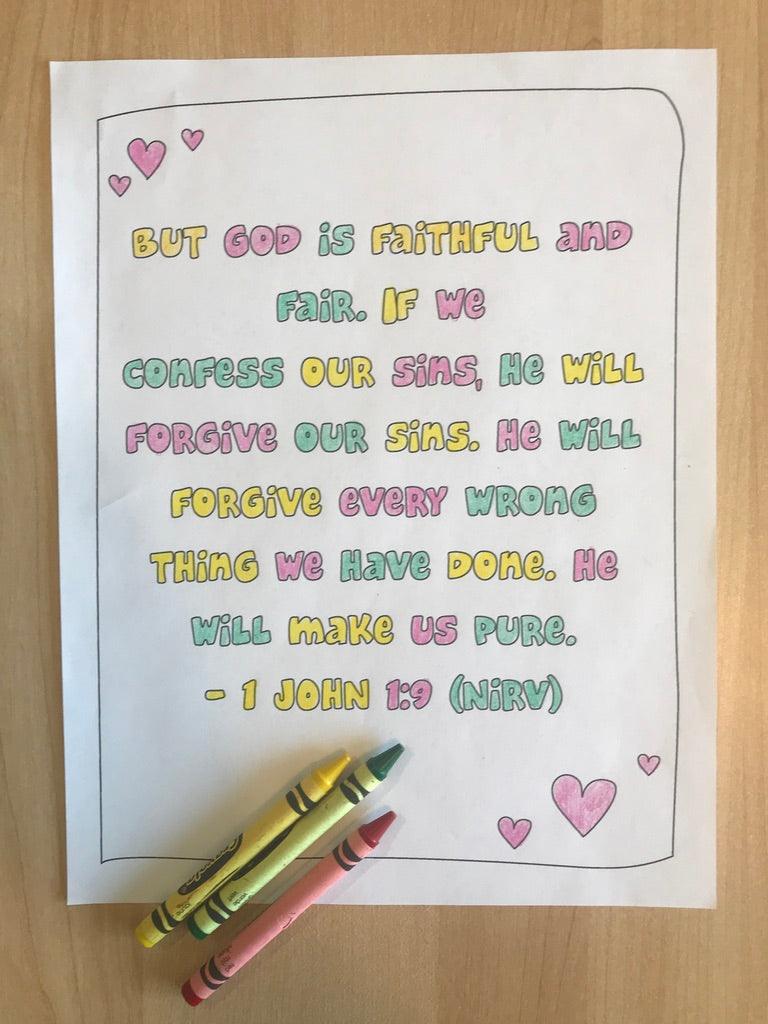 BUT GOD IS FAITHFUL AND
FAIR. IF WE
CONFESS OUR SINS, HE WILL
FORGIVE OUR SINS. HE WILL
FORGIVE EVERY WRONG
THING WE HAVE DONE. HE
WILL MAKE US PURE.
- 1 JOHN 1:9 (NIRV)